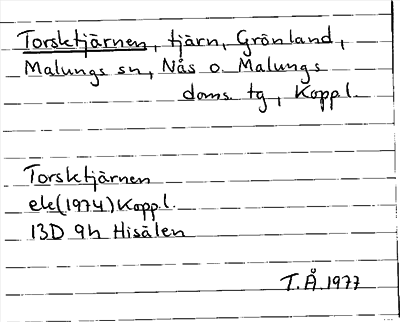 Torsktjärnen, tjärn, Grönland,
Malungs sn, Nås o. Malungs
doms. tg, Koppl.
Torsktjärnen
ek(1974) Koppl.
13D 9h Hisälen
T.Å. 1977